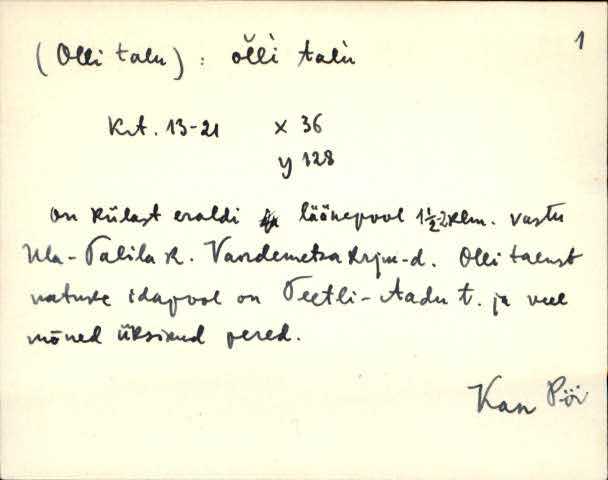 1
(Olli talu) : õlli talu
Krt. 13-21 x 36
y 128
on külast eraldi läänepool 1½-2 klm. vastu
Ula-Palila k. Vandemetsa krjm-d. Olli talust
natuke idapool on Peetli-Aadu t. ja veel
mõned üksikud pered.
Kan Pöi